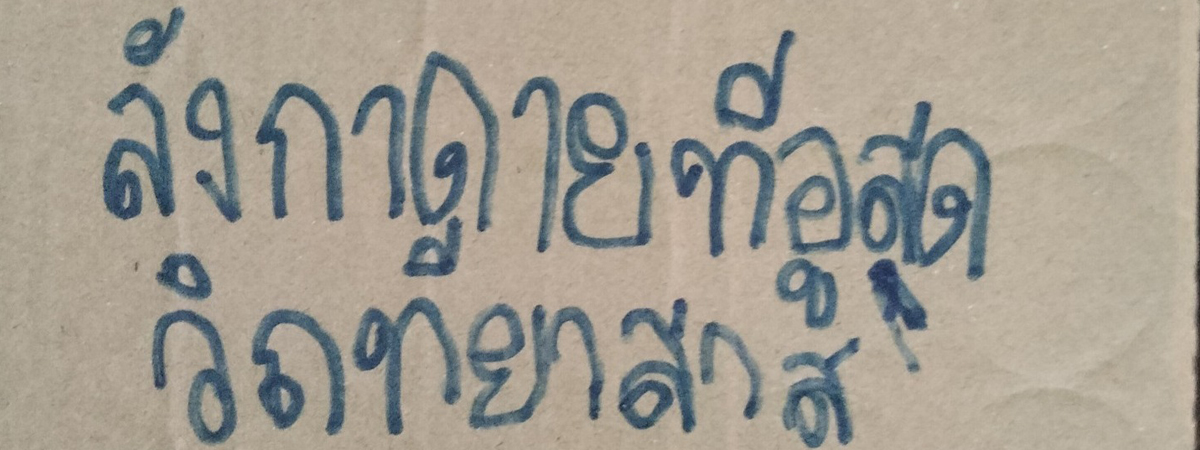 ลังกาดายทีอูสุด
วิถทียาสาส